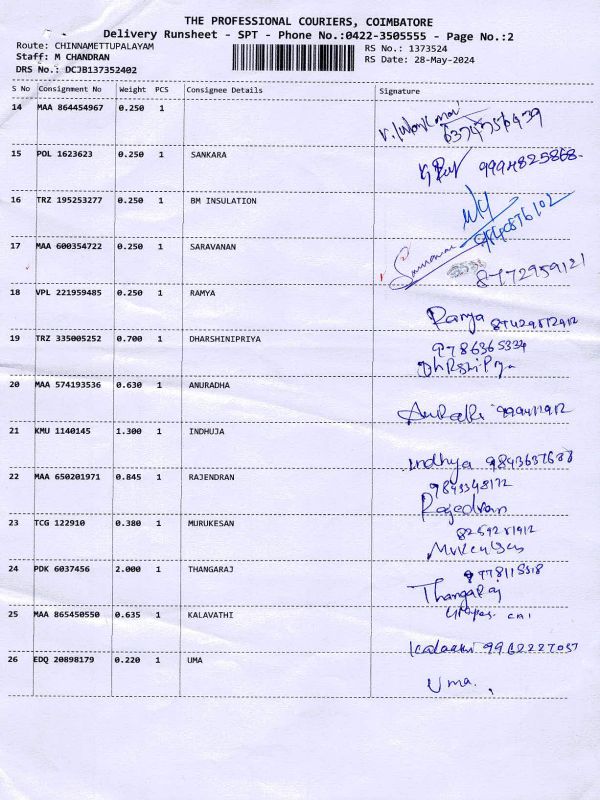 THE PROFESSIONAL COURIERS, COIMBATORE
Delivery Runsheet - SPT - Phone No.:0422-3505555 - Page No.:2
Route: CHINNAMETTUPALAYAM
RS No.: 1373524
Staff: M CHANDRAN
RS Date: 28-May-2024
DRS No.: DCJB137352402
S No Consignment No Weight PCS Consignee Details Signature
14 MAA 864454967 0.250 1
15 POL 1623623 0.250 1 SANKARA
9994825868-
16 TRZ 195253277 0.250 1 BM INSULATION
17 MAA 600354722 0.250 1 SARAVANAN
8772959121
18 VPL 221959485 0.250 1 RAMYA
Ramya
19 TRZ 335005252 0.700 1 DHARSHINIPRIYA
9786365334
20 MAA 574193536 0.630 1 ANURADHA
21 KMU 1140145 1.300 1 INDHUJA
indhya 9843637688
22 MAA 650201971 0.845 1 RAJENDRAN
9843348172
23 TCG 122910 0.380 1 MURUKESAN
24 PDK 6037456 2.000 1 THANGARAJ
Thangaraj
25 MAA 865450550 0.635 1 KALAVATHI
9962227057
26 EDQ 20898179 0.220 1 UMA
Uma.